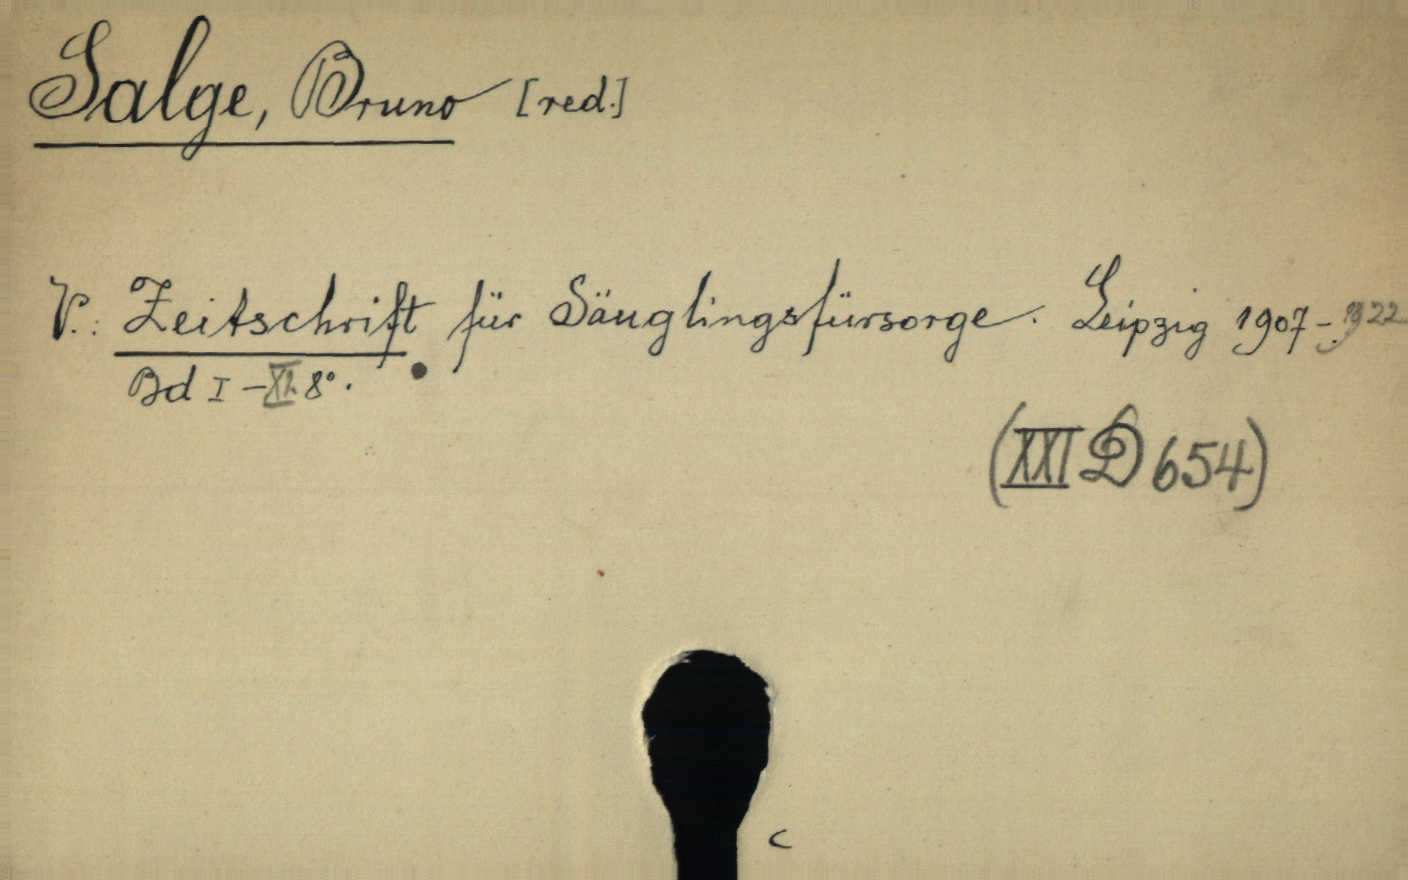 Salge, Bruno [red.]
V.: Zeitschrift für Säuglingsfürsorge. Leipzig 1907-1922
Bd I - XI. 8°.
(XXI D 654)
c